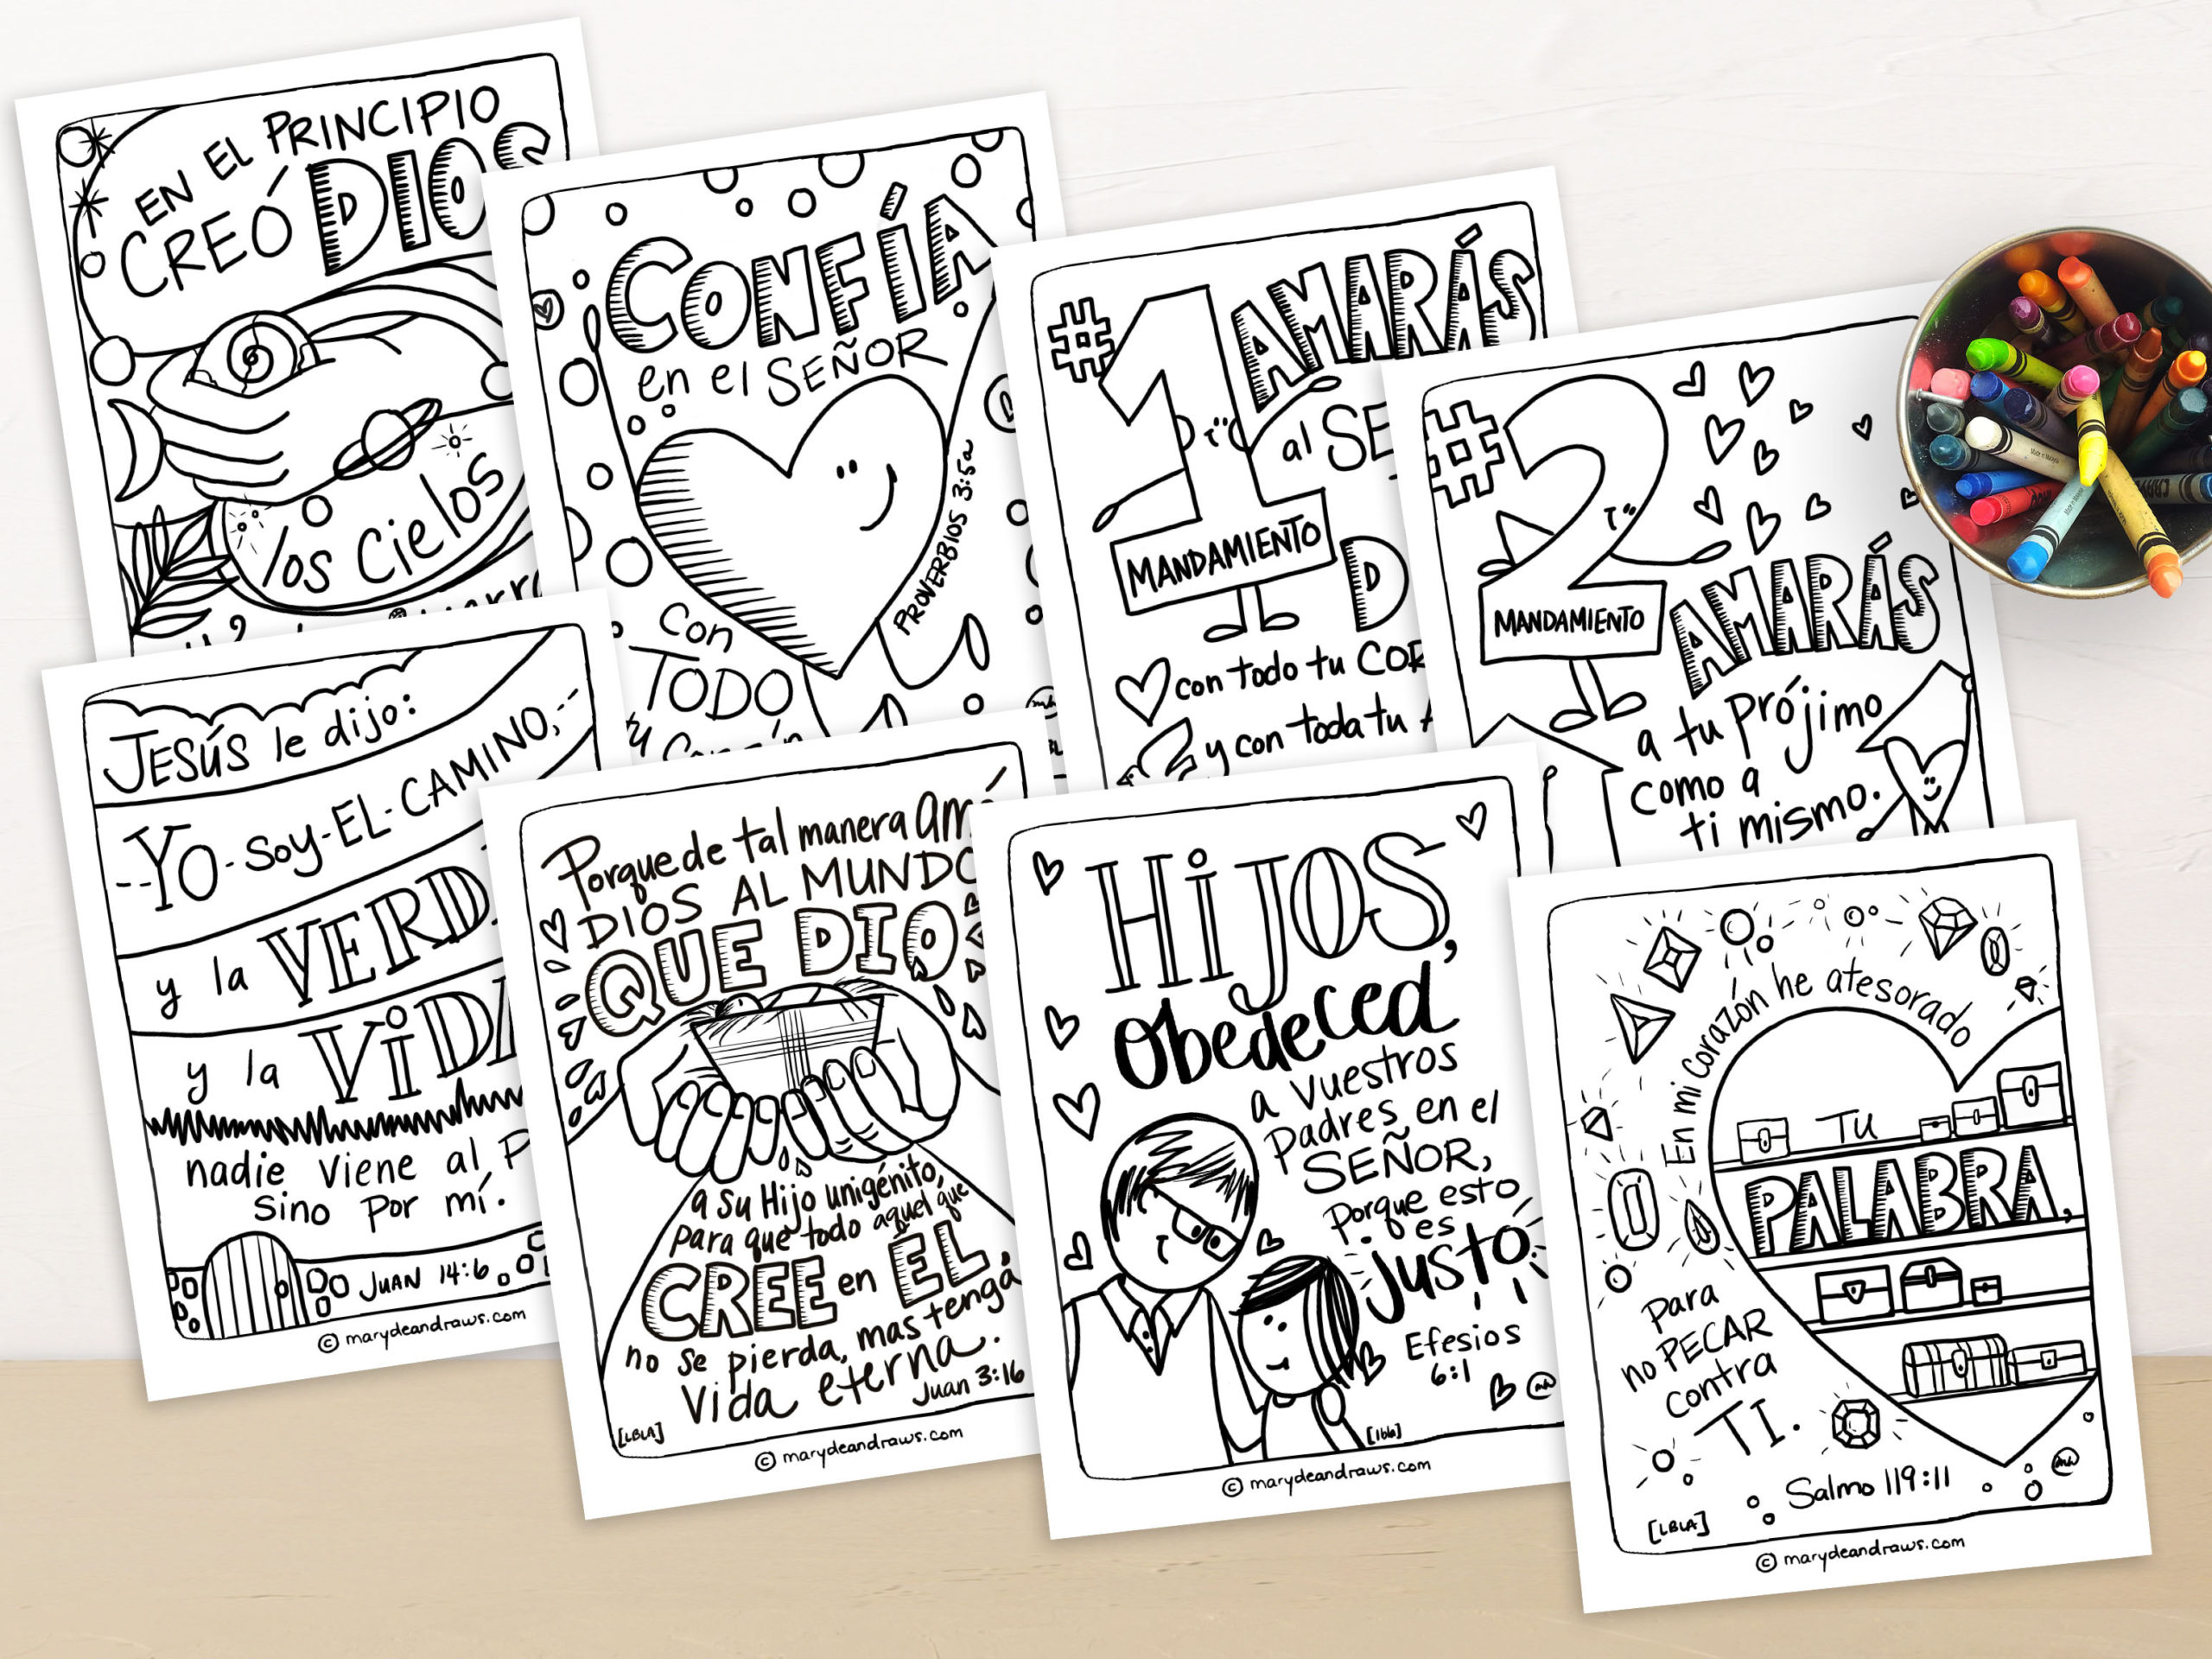 EN EL PRINCIPIO
CREÓ DIOS
los cielos
CONFÍA
en el SEÑOR
PROVERBIOS 3:5a
con
TODO
#1 AMARÁS
al
MANDAMIENTO
con todo tu
y con toda tu
#2
MANDAMIENTO
AMARÁS
a tu prójimo
como a
ti mismo.
JESÚS le dijo:
YO-SOY-EL-CAMINO,
y la
y la
nadie viene al
sino por mí.
JUAN 14:6
© marydeandraws.com
Porque de tal manera
DIOS AL
QUE DIO
a su Hijo unigénito,
para que todo aquel que
CREE en EL,
no se pierda, mas tenga
vida eterna.
Juan 3:16
[LBLA]
© marydeandraws.com
HIJOS,
obedeced
a vuestros
padres en el
SEÑOR,
porque esto
es
justo
Efesios
6:1
[lbla]
© marydeandraws.com
En mi corazón he atesorado
TU
PALABRA,
para
no PECAR
contra
TI.
Salmo 119:11
[LBLA]
© marydeandraws.com